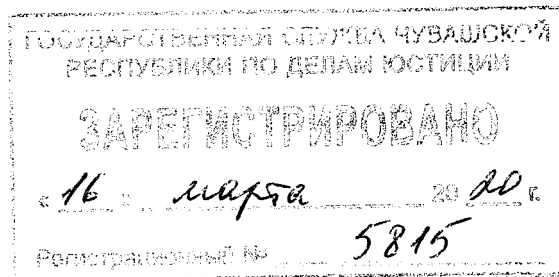 ГОСУДАРСТВЕННАЯ СЛУЖБА ЧУВАШСКОЙ
РЕСПУБЛИКИ ПО ДЕЛАМ ЮСТИЦИИ
ЗАРЕГИСТРИРОВАНО
« 16 » марта 20 20 г.
Регистрационный № 5815